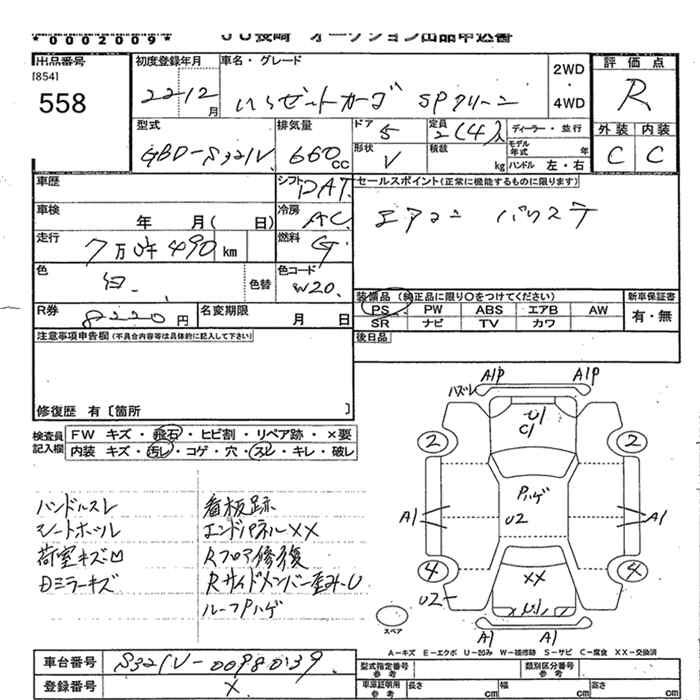 *0002009*
JU長崎 オークション出品申込書
出品番号
[854]
558
初度登録年月
22 12月
車名・グレード
ハイゼットカーゴ SPクリーン
2WD
・
4WD
評価点
R
型式
GBD-S321V
排気量
660cc
ドア
5
定員
2(4)人
形状
V
積載
kg
ディーラー・並行
モデル年式 年
ハンドル 左・右
外装 内装
C C
車歴
シフト
DAT
セールスポイント(正常に機能するものに限ります)
エアコン パワステ
車検
年 月( 日)
冷房
AC
走行
7万0千490km
燃料
G
色
白
色替
色コード
W20
R券
8220円
名変期限
月 日
装備品 (純正品に限り○をつけてください)
新車保証書
PS PW ABS エアB AW
有・無
SR ナビ TV カワ
後日品
注意事項申告欄(不具合内容等は具体的に記入して下さい)
修復歴 有〔箇所 〕
検査員
記入欄
FW キズ・飛石・ヒビ割・リペア跡・×要
内装 キズ・汚レ・コゲ・穴・スレ・キレ・破レ
ハンドルスレ 看板跡
シートホール エンドパネルXX
荷室キズ凹 Rフロア修復
Dミラーキズ Rサイドメンバー歪み-U
ルーフPハゲ
A1P A1P
ハズレ
U1
C1
2 2
Pハゲ
U2
A1 A1
4 4
XX
U2
U1
A1 A1
スペア
A-キズ E-エクボ U-凹み W-補修跡 S-サビ C-腐食 XX-交換済
車台番号
S321V-0098039
登録番号
X
型式指定番号
参考
類別区分番号
参考
車庫証明用
参考
長さ cm
幅 cm
高さ cm